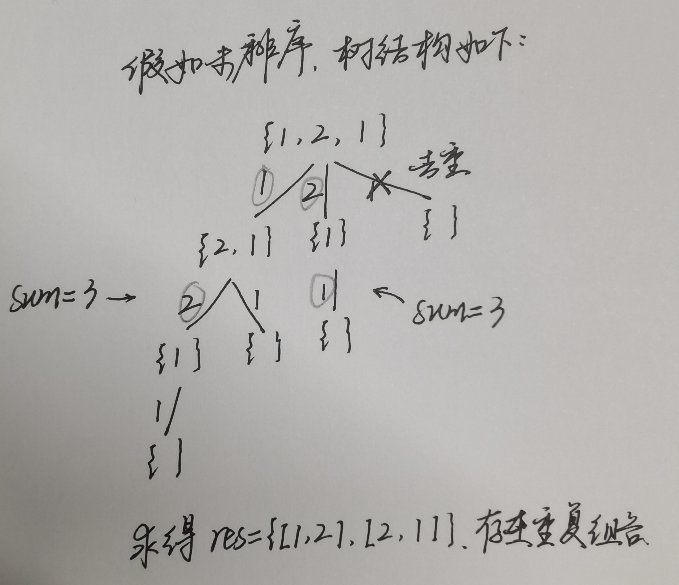 假如未排序，树结构如下：
{1, 2, 1}
1 2 去重
{2, 1} {1} { }
sum=3 → 2 1 1 ← sum=3
{1} { } { }
1
{ }
求得 res={[1,2], [2,1]}. 存在重复组合